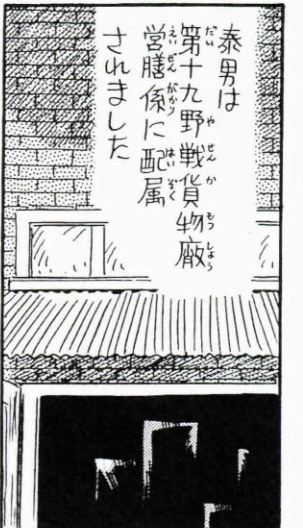 泰男は
第十九野戦貨物廠
営膳係に配属
されました